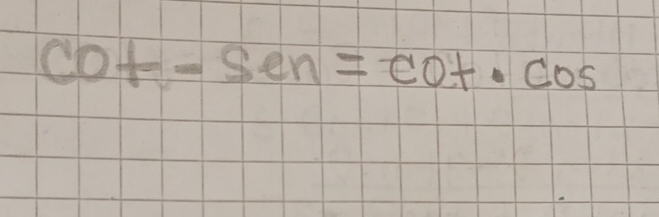 cot - sen = cot · cos